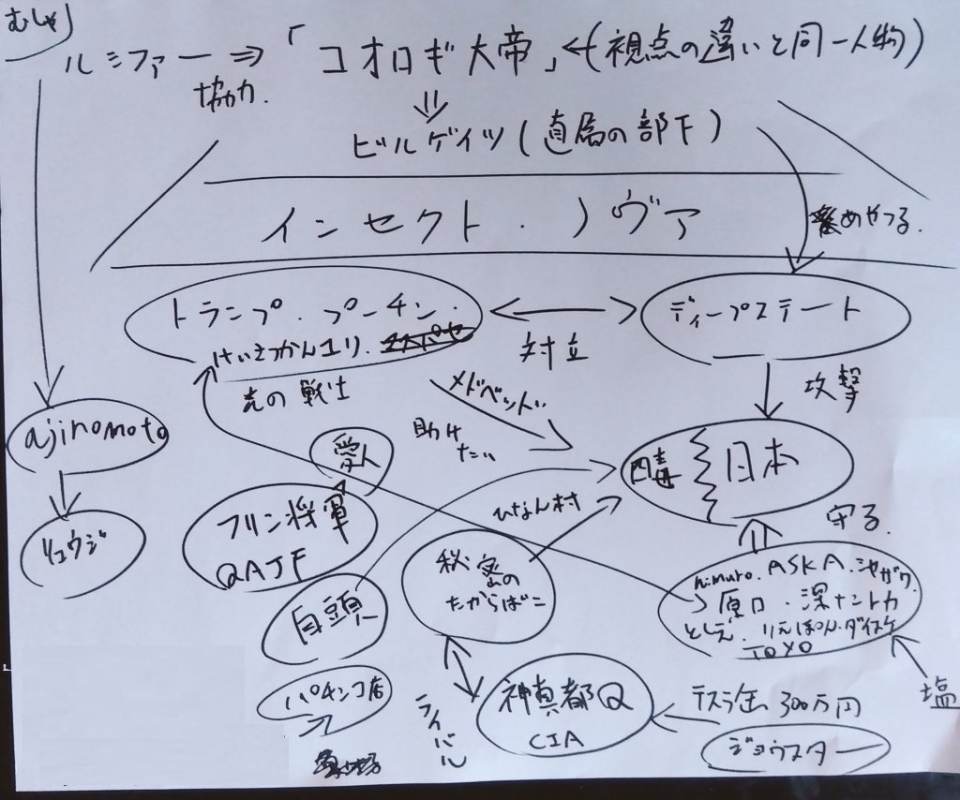 ルシファー ⇒ 「コオロギ大帝」 ← (視点の違いと同一人物)
協力.
ビルゲイツ (直属の部下)
インセクト.ノヴァ
トランプ.プーチン.
けいさつかんユリ.
光の戦士
対立
ディープステート
攻撃
メドベッド
助けたい
ajinomoto
リュウジ
愛人
フリン将軍
QAJF
四毒 日本
ひなん村
守る.
秘密の
たからばこ
himuro. ASKA.
原口.深ナントカ
りえぽん.ダイスケ
TOYO
塩
白頭
パチンコ店
ライバル
神真都Q
CIA
テスラ缶 300万円
ジョウスター